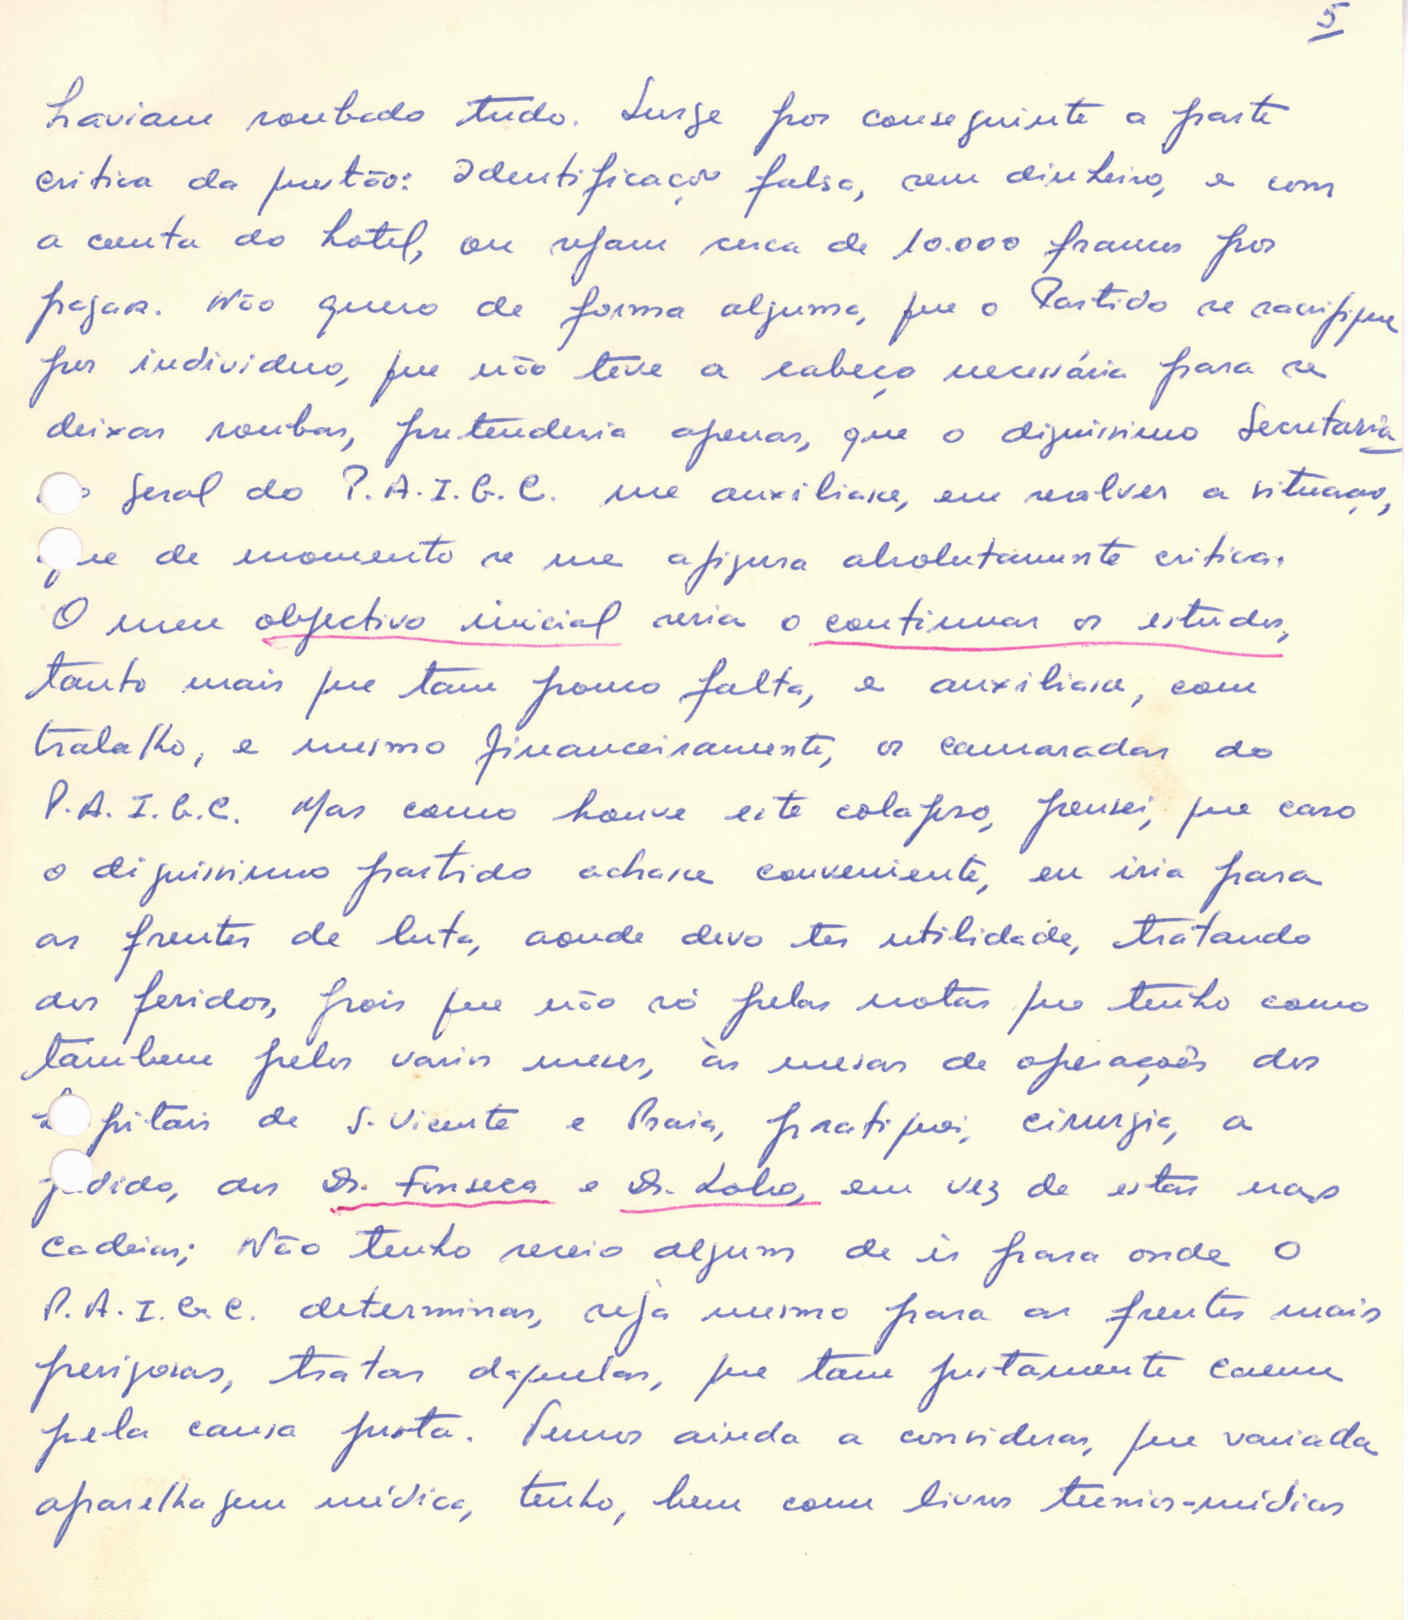 5
haviam roubado tudo. Surge por conseguinte a parte
critica da questão: Identificação falsa, sem dinheiro, e com
a conta do hotel, ou sejam cerca de 10.000 francos por
pagar. Não quero de forma alguma, que o Partido se sacrifique
por individuo, que não teve a cabeça necessária para se
deixar roubar, pretenderia apenas, que o dignissimo Secretaria
do Geral do P.A.I.G.C. me auxiliasse, em resolver a situação,
que de momento se me afigura absolutamente critica.
O meu objectivo inicial seria o continuar os estudos,
tanto mais que tam pouco falta, e auxiliasse, com
trabalho, e mesmo financeiramente, os camaradas do
P.A.I.G.C. Mas como houve este colapso, pensei, que caso
o dignissimo partido achasse conveniente, eu iria para
as frentes de luta, aonde devo ter utilidade, tratando
dos feridos, pois que não só pelas notas que tenho como
tambem pelos varios meses, às mesas de operações dos
hospitais de S. Vicente e Praia, pratiquei, cirurgia, a
pedido, dos Dr. Fonseca e Dr. Lobo, em vez de estar nas
cadeias; Não tenho receio algum de ir para onde O
P.A.I.G.C. determinar, seja mesmo para as frentes mais
perigosas, tratar daqueles, que tam justamente caem
pela causa justa. Temos ainda a considerar, que variada
aparelhagem médica, tenho, bem como livros tecnios-médicos